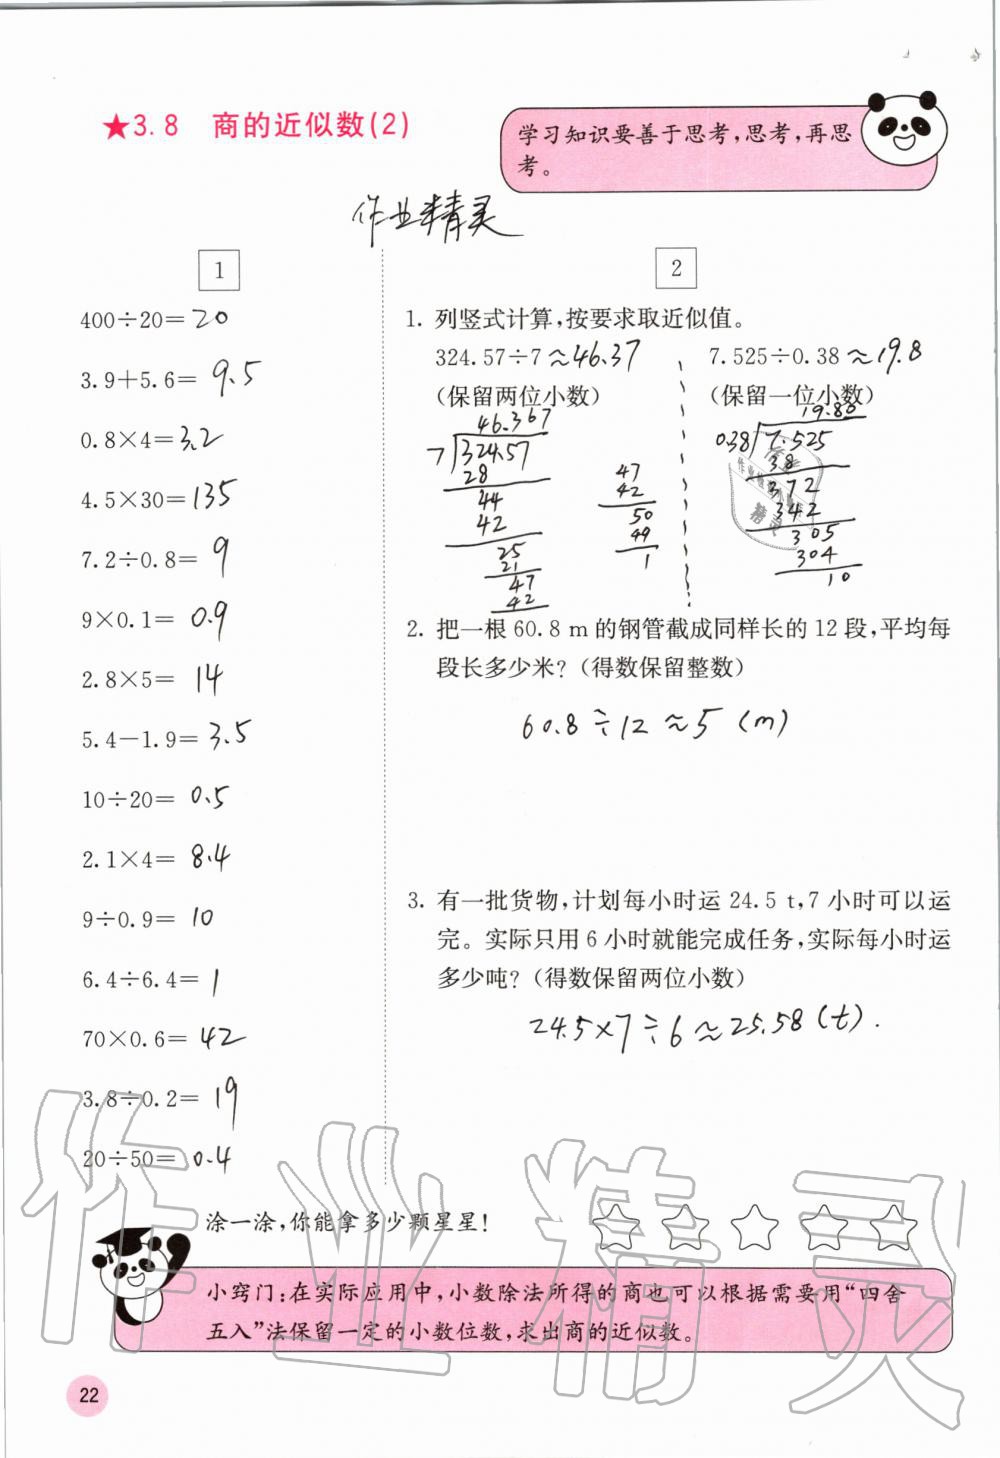 ★3.8 商的近似数(2)
学习知识要善于思考,思考,再思
考。
作业精灵
1
400÷20=20
3.9+5.6= 9.5
0.8×4=3.2
4.5×30=135
7.2÷0.8= 9
9×0.1= 0.9
2.8×5= 14
5.4-1.9= 3.5
10÷20= 0.5
2.1×4= 8.4
9÷0.9= 10
6.4÷6.4= 1
70×0.6= 42
3.8÷0.2= 19
20÷50= 0.4
2
1. 列竖式计算,按要求取近似值。
324.57÷7≈46.37
(保留两位小数)
46.367
7 324.57
28
44
42
25
21
47
42
47
42
50
49
1
7.525÷0.38≈19.8
(保留一位小数)
19.80
0.38 7.525
38
372
342
305
304
10
2. 把一根 60.8 m 的钢管截成同样长的 12 段,平均每
段长多少米?(得数保留整数)
60.8÷12≈5(m)
3. 有一批货物,计划每小时运 24.5 t,7 小时可以运
完。实际只用 6 小时就能完成任务,实际每小时运
多少吨?(得数保留两位小数)
24.5×7÷6≈25.58(t).
涂一涂,你能拿多少颗星星!
小窍门:在实际应用中,小数除法所得的商也可以根据需要用“四舍
五入”法保留一定的小数位数,求出商的近似数。
22
作业精灵